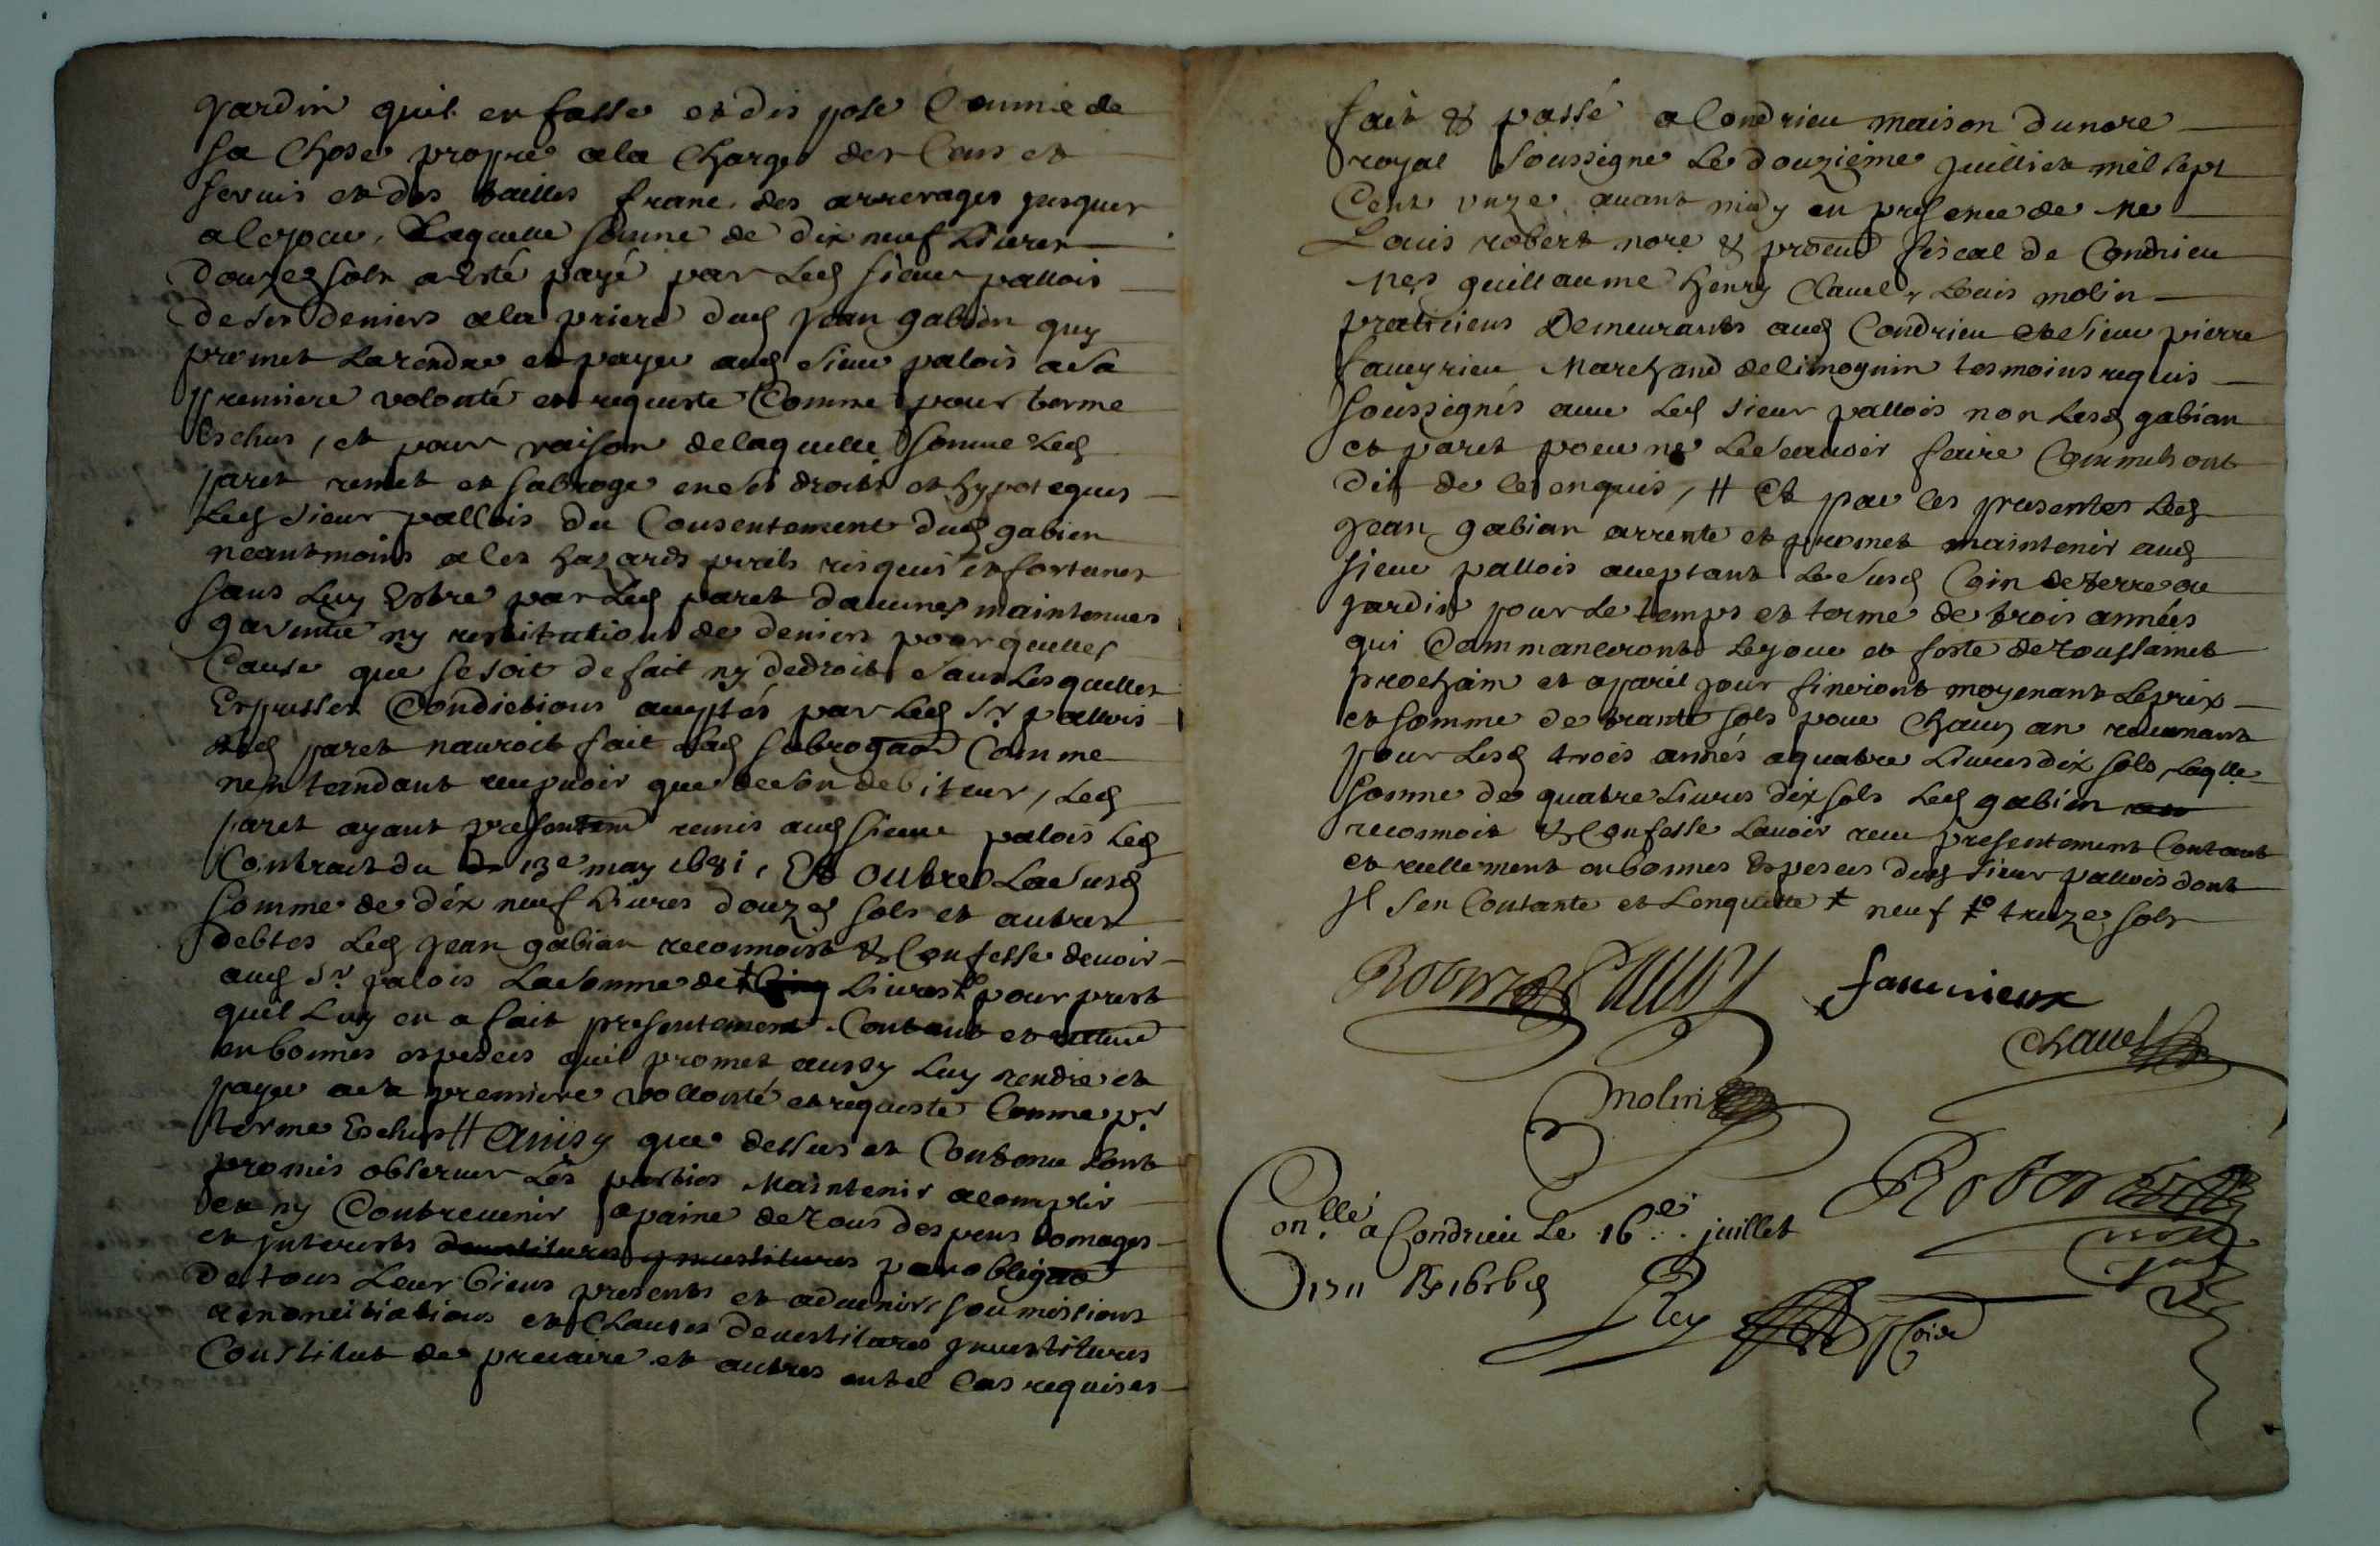 jardin quil en fasse et dis pose Comme de
sa Chose propre ala Charge des Cens et
servis et des tailles franc des arrerages jusques
a cejour, Laquelle somme de dix neuf Livres
douze sols a Esté payé par Led sieur pallois
de ses deniers ala priere dud jean gabien quy
promet La rendre et payer aud sieur palois a sa
premiere volonté et requeste Comme pour terme
Eschus, et pour raison delaquelle somme Led
paret remet et subroge en ses droits et hypoteques
Led sieur pallois du Consentement dud gabien
neantmoins a ses hazards perils risques et fortunes
sans Luy Estre par Led paret daucunes maintenues
garentie ny restitutions de deniers pour quelles
Cause que se soit de fait ny dedroit sans Lesquelles
Expresses Condictions aceptés par Led Sr. pallois
Led paret nauroit fait Lad subrogaon Comme
nentendant recepvoir que de son debiteur, Led
paret ayant presentem remis aud sieur palois Led
Contract du 13e may 1681, Et outre La susd
somme de dix neuf Livres douze sols et autres
debtes Led jean gabian reconnoist & Confesse devoir
aud Sr. palois La somme de + Cinq Livres + pour prest
quil Luy en a fait presentement Contant et
en bonnes especes quil promet aussy Luy rendre et
payer a sa premiere vollonté et requeste Comme pr
terme Eschus # Ainsy que dessus et Contenu Lont
promis observer Les parties Maintenir acomplir
et ny Contrevenir apaine de tous despens domages
et jnterests devestitures jnvestitures par obligaon
de tous Leur biens presents et advenir, soumissions
renonciations et Clauses devestitures jnvestitures
Constitut de precaire et autres en tel Cas requises
fait & passé a Condrieu maison du nore
royal soussigne Le douzième juilliet mil sept
Cent vnze avant midy en presence de Me
Louis robert nore & procur fiscal de Condrieu
Mes guillaume henry Clavel, Louis molin
praticiens Demeurants aud Condrieu et sieur pierre
faucyrieu Marchand de limognin tesmoins requis
soussignés avec Led sieur pallois non Lesd gabian
et paret pour ne Le scauoir faire Comme ont
dit de ce enquis, # Et par ces presentes Led
jean gabian arrente et promet maintenir aud
sieur pallois aceptant Le susd Coin de terre ou
jardin pour Le temps et terme de trois années
qui Commanceront Le jour et feste de toussainct
prochain et a pareil jour finiront moyenant Le prix
et somme de trante sols pour Chacun an revenant
pour Lesd trois annés a quatre Livres dix sols, Laqlle
somme de quatre Livres dix sols Led gabien
reconnoit & Confesse L'avoir receu presentement Contant
et reellement en bonnes Especes dud sieur pallois dont
jl s'en Contante et L'enquitte + neuf + treize sols
Robert
faucirieux
Chavel
Molin
Robert
Conllé a Condrieu Le 16e juillet
1711 R 16s 6d
Rey